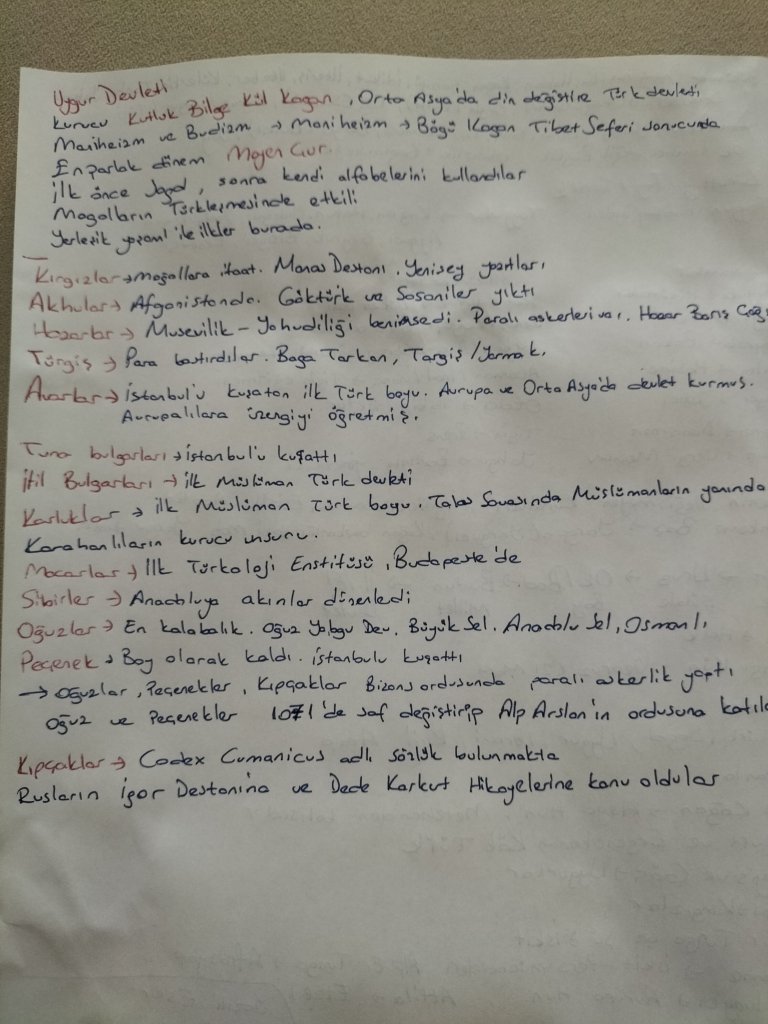 Uygur Devleti
kurucu Kutluk Bilge Kül Kagan, Orta Asya'da din değiştire Türk devleti
Maniheizm ve Budizm → Maniheizm → Bögü Kagan Tibet Seferi sonucunda
En parlak dönem Moyen Çur.
ilk önce Sogd, sonra kendi alfabelerini kullandılar
Mogolların Türkleşmesinde etkili
Yerleşik yaşam ile ilkler burada.
Kırgızlar → moğollara itaat. Manas Destanı. Yenisey yazıtları
Akhular → Afganistanda. Göktürk ve Sasaniler yıktı
Hazarlar → Musevilik - Yahudiliği benimsedi. Paralı askerleri var. Hazar Barış Çağı
Türgiş → Para bastırdılar. Baga Tarkan, Targiş / Yarmak.
Avarlar → İstanbul'u kuşatan ilk Türk boyu. Avrupa ve Orta Asya'da devlet kurmuş.
Avrupalılara üzengiyi öğretmiş.
Tuna bulgarları → istanbul'u kuşattı
İtil Bulgarları → ilk Müslüman Türk devleti
Karluklar → ilk Müslüman Türk boyu. Talas Savasında Müslümanların yanında
Karahanlıların kurucu unsuru.
Macarlar → İlk Türkoloji Enstitüsü, Budapeşte'de
Sibirler → Anadoluya akınlar düzenledi
Oğuzlar → En kalabalık. Oğuz Yabgu Dev. Büyük Sel. Anadolu Sel, Osmanlı
Peçenek → Boy olarak kaldı. istanbulu kuşattı
→ Oğuzlar, Peçenekler, Kıpçaklar Bizans ordusunda paralı askerlik yaptı
Oğuz ve Peçenekler 1071'de saf değiştirip Alp Arslan'ın ordusuna
Kıpçaklar → Codex Cumanicus adlı sözlük bulunmakta
Rusların İgor Destanına ve Dede Korkut Hikayelerine konu oldular